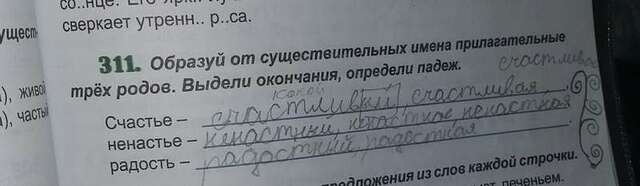 со..нце. Его
сверкает утренн.. р..са.
311. Образуй от существительных имена прилагательные
трёх родов. Выдели окончания, определи падеж.
какой счастливое
Счастье – счастливый, счастливая
ненастье – ненастный, ненастное ненастная
радость – радостный, радостная
предложения из слов каждой строчки.
печеньем.
), живой
), часты